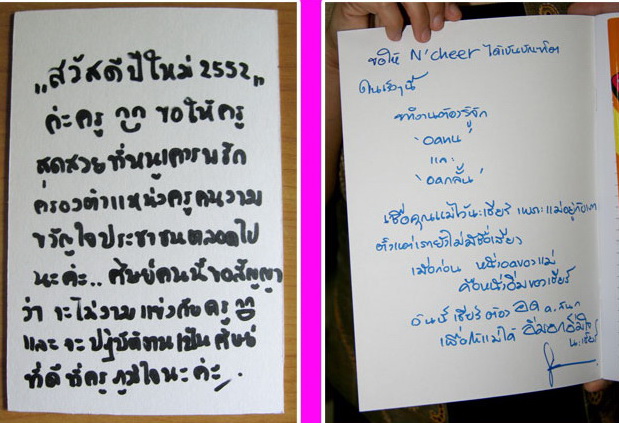 „สวัสดีปีใหม่ 2552„
ค่ะครู ขอให้ครู
สุดสวยที่หนูเคารพรัก
ครองตำแหน่งครูคนงาม
ขวัญใจประชาชนตลอดไป
นะคะ.. ศิษย์คนนี้ขอสัญญา
ว่า จะไม่งามแข่งกับครู
และ จะปฏิบัติตนเป็นศิษย์
ที่ดี ที่ครูภูมิใจนะคะ
ขอให้ N'cheer ได้เป็นบัณฑิต
ในเร็วๆนี้
ทำงานต้องรู้จัก
'อดทน'
และ
'อดกลั้น'
เชื่อคุณแม่ไว้นะเชียร์ เพราะแม่อยู่กับเรา
ตั้งแต่เรายังไม่มีชื่อเสียง
เมื่อก่อน หนึ่งอดของแม่
คือหนึ่งอิ่มของเชียร์
วันนี้ เชียร์ ต้อง อด
เพื่อให้แม่ได้ อิ่มอกอิ่มใจ
นะเชียร์